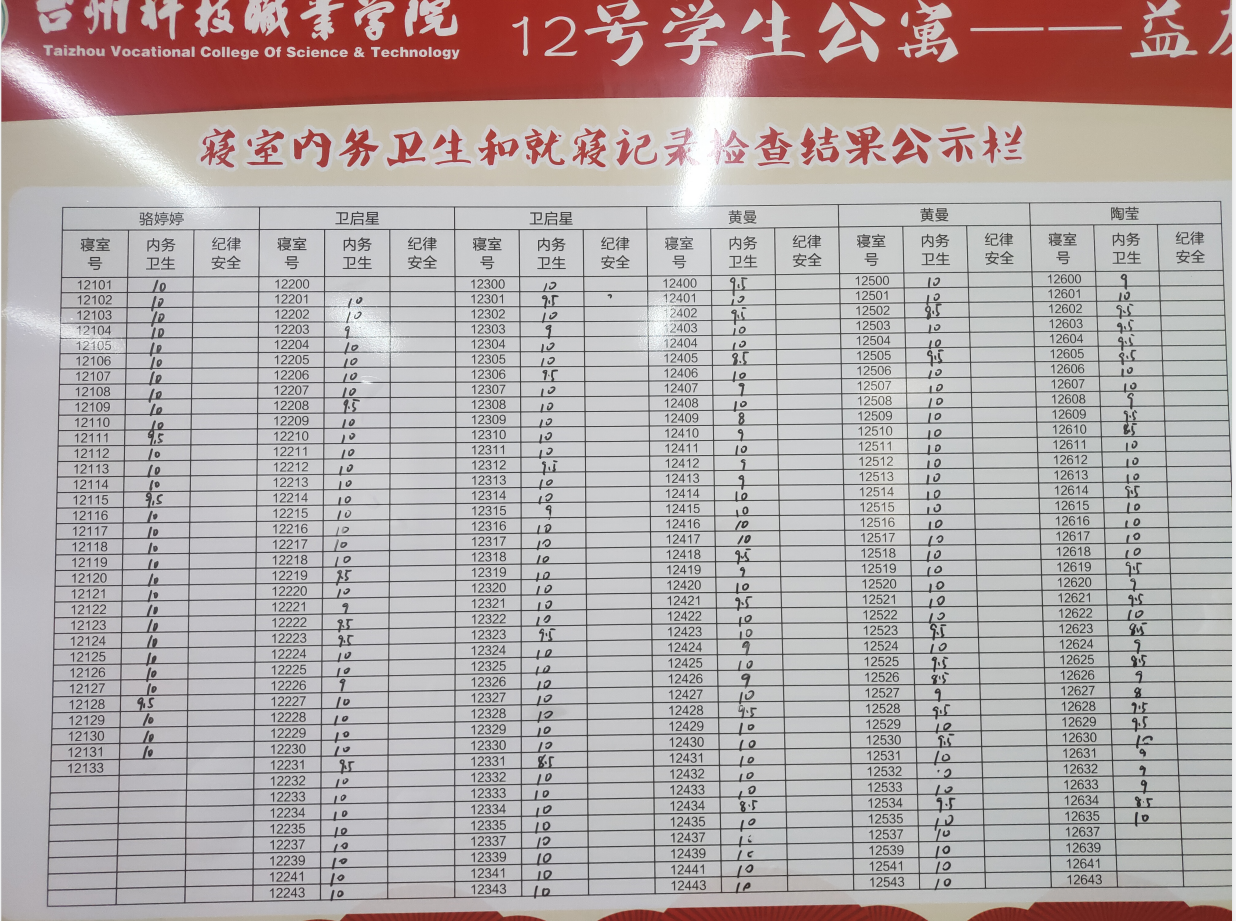 台州科技职业学院
Taizhou Vocational College Of Science & Technology
12号学生公寓——益
寝室内务卫生和就寝记录检查结果公示栏
骆婷婷 卫启星 卫启星 黄曼 黄曼 陶莹
寝室号 内务卫生 纪律安全 寝室号 内务卫生 纪律安全 寝室号 内务卫生 纪律安全 寝室号 内务卫生 纪律安全 寝室号 内务卫生 纪律安全 寝室号 内务卫生 纪律安全
12101 10 12200 12300 10 12400 9.5 12500 10 12600 9
12102 10 12201 10 12301 9.5 12401 10 12501 10 12601 10
12103 10 12202 10 12302 10 12402 9.5 12502 8.5 12602 9.5
12104 10 12203 9 12303 9 12403 10 12503 10 12603 9.5
12105 10 12204 10 12304 10 12404 10 12504 10 12604 9.5
12106 10 12205 10 12305 10 12405 8.5 12505 9.5 12605 9.5
12107 10 12206 10 12306 9.5 12406 10 12506 10 12606 10
12108 10 12207 10 12307 10 12407 9 12507 10 12607 10
12109 10 12208 9.5 12308 10 12408 10 12508 10 12608 9
12110 10 12209 10 12309 10 12409 8 12509 10 12609 9.5
12111 9.5 12210 10 12310 10 12410 9 12510 10 12610 8.5
12112 10 12211 10 12311 10 12411 10 12511 10 12611 10
12113 10 12212 10 12312 9.5 12412 9 12512 10 12612 10
12114 10 12213 10 12313 10 12413 9 12513 10 12613 10
12115 9.5 12214 10 12314 10 12414 10 12514 10 12614 9.5
12116 10 12215 10 12315 9 12415 10 12515 10 12615 10
12117 10 12216 10 12316 10 12416 10 12516 10 12616 10
12118 10 12217 10 12317 10 12417 10 12517 10 12617 10
12119 10 12218 10 12318 10 12418 9.5 12518 10 12618 10
12120 10 12219 9.5 12319 10 12419 9 12519 10 12619 9.5
12121 10 12220 10 12320 10 12420 10 12520 10 12620 9
12122 10 12221 9 12321 10 12421 9.5 12521 10 12621 9.5
12123 10 12222 9.5 12322 10 12422 10 12522 10 12622 10
12124 10 12223 9.5 12323 9.5 12423 10 12523 9.5 12623 8.5
12125 10 12224 10 12324 10 12424 9 12524 10 12624 9
12126 10 12225 10 12325 10 12425 10 12525 9.5 12625 8.5
12127 10 12226 9 12326 10 12426 9 12526 8.5 12626 9
12128 9.5 12227 10 12327 10 12427 10 12527 9 12627 8
12129 10 12228 10 12328 10 12428 9.5 12528 9.5 12628 9.5
12130 10 12229 10 12329 10 12429 10 12529 10 12629 9.5
12131 10 12230 10 12330 10 12430 10 12530 9.5 12630 10
12133 12231 9.5 12331 8.5 12431 10 12531 10 12631 9
12232 10 12332 10 12432 10 12532 10 12632 9
12233 10 12333 10 12433 10 12533 10 12633 9
12234 10 12334 10 12434 8.5 12534 9.5 12634 8.5
12235 10 12335 10 12435 10 12535 10 12635 10
12237 10 12337 10 12437 10 12537 10 12637
12239 10 12339 10 12439 10 12539 10 12639
12241 10 12341 10 12441 10 12541 10 12641
12243 10 12343 10 12443 10 12543 10 12643